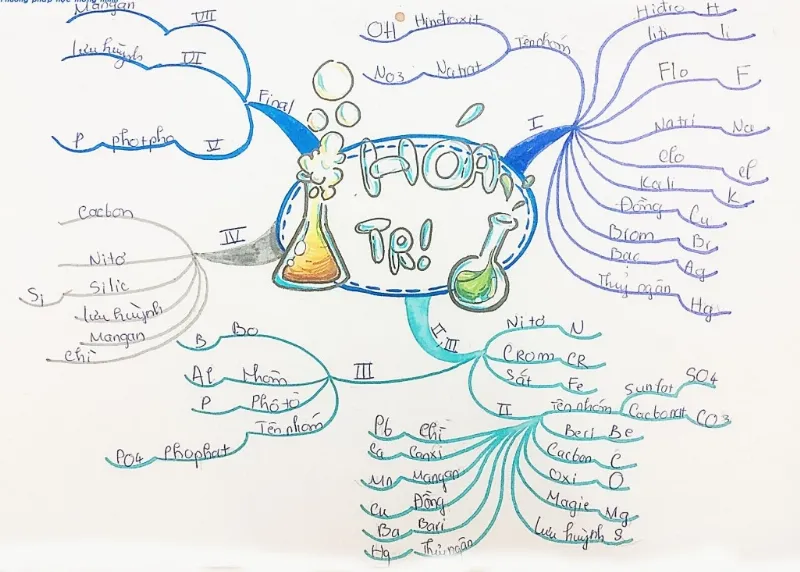 HOÁ
TRỊ
I
Hiđro H
liti li
Flo F
Natri Na
Clo Cl
Kali K
Đồng Cu
Brom Br
Bạc Ag
Thuỷ ngân Hg
Tên nhóm
OH Hiđroxit
NO3 Natrat
II, III
Nitơ N
CROM CR
Sắt Fe
II
Tên nhóm
Sunfat SO4
Cacbonat CO3
Beri Be
Cacbon C
Oxi O
Magie Mg
Lưu huỳnh S
Pb Chì
Ca Canxi
Mn Mangan
Cu Đồng
Ba Bari
Hg Thuỷ ngân
III
B Bo
Al Nhôm
P Phôtô
Tên nhóm
PO4 Phophat
IV
Cacbon
Nitơ
Si Silic
Lưu huỳnh
Mangan
Chì
Final
V
P photpho
VI
Lưu huỳnh
VII
Mangan